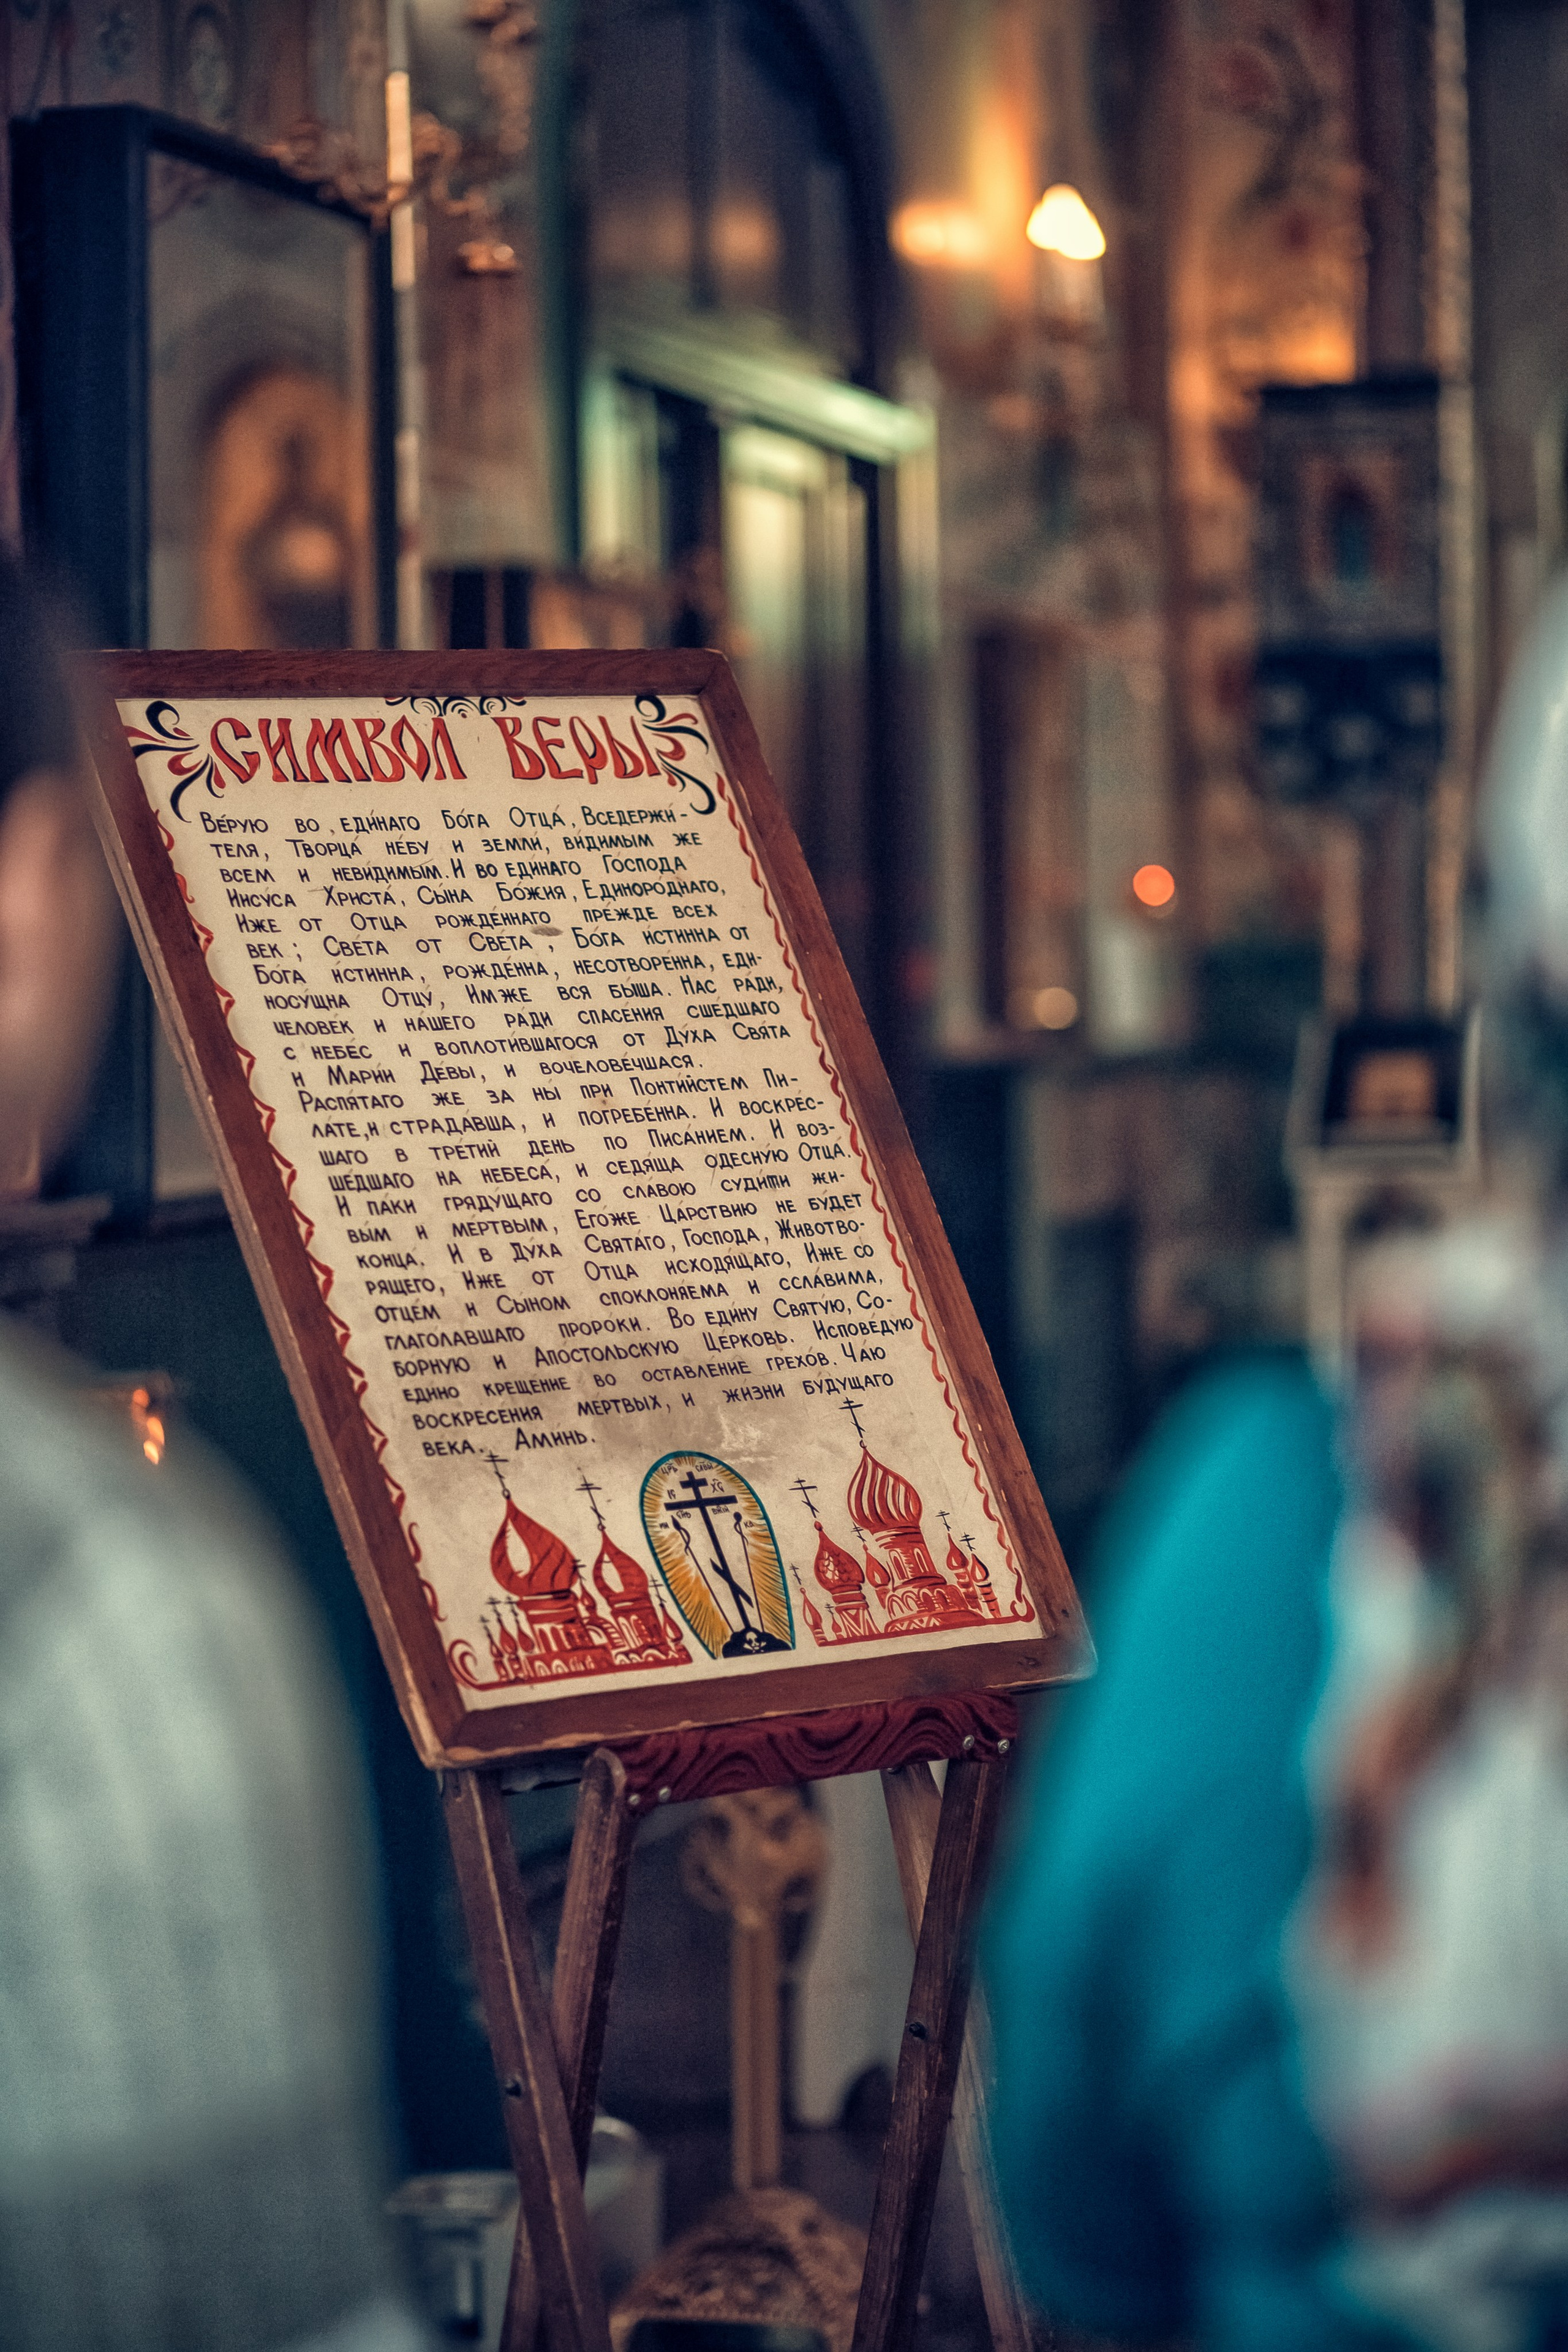 СИМВОЛ ВЕРЫ
ВЕ́РУЮ ВО ЕДИ́НАГО БО́ГА ОТЦА́, ВСЕДЕРЖИ́-
ТЕЛЯ, ТВОРЦА́ НЕ́БУ И ЗЕМЛИ́, ВИ́ДИМЫМ ЖЕ
ВСЕМ И НЕВИ́ДИМЫМ. И ВО ЕДИ́НАГО ГО́СПОДА
ИИСУ́СА ХРИСТА́, СЫ́НА БО́ЖИЯ, ЕДИНОРО́ДНАГО,
ИЖЕ ОТ ОТЦА РОЖДЕ́ННАГО ПРЕ́ЖДЕ ВСЕХ
ВЕК; СВЕ́ТА ОТ СВЕ́ТА, БО́ГА И́СТИННА ОТ
БО́ГА И́СТИННА, РОЖДЕ́ННА, НЕСОТВОРЕ́ННА, ЕДИ-
НОСУ́ЩНА ОТЦУ́, ИМЖЕ ВСЯ БЫ́ША. НАС РА́ДИ,
ЧЕЛОВЕ́К И НА́ШЕГО РА́ДИ СПАСЕ́НИЯ СШЕ́ДШАГО
С НЕБЕ́С И ВОПЛОТИ́ВШАГОСЯ ОТ ДУ́ХА СВЯ́ТА
И МАРИ́И ДЕ́ВЫ, И ВОЧЕЛОВЕ́ЧШАСЯ.
РАСПЯ́ТАГО ЖЕ ЗА НЫ́ ПРИ ПОНТИ́ЙСТЕМ ПИ-
ЛА́ТЕ, И СТРАДА́ВША, И ПОГРЕБЕ́ННА. И ВОСКРЕ́С-
ШАГО В ТРЕ́ТИЙ ДЕНЬ ПО ПИСА́НИЕМ. И ВОЗ-
ШЕ́ДШАГО НА НЕБЕСА́, И СЕДЯ́ЩА ОДЕСНУ́Ю ОТЦА́.
И ПА́КИ ГРЯДУ́ЩАГО СО СЛА́ВОЮ СУДИ́ТИ ЖИ-
ВЫ́М И МЕ́РТВЫМ, ЕГО́ЖЕ ЦА́РСТВИЮ НЕ БУ́ДЕТ
КОНЦА́. И В ДУ́ХА СВЯТА́ГО, ГО́СПОДА, ЖИВОТВО-
РЯ́ЩЕГО, И́ЖЕ ОТ ОТЦА ИСХОДЯ́ЩАГО, ИЖЕ СО
ОТЦЕ́М И СЫ́НОМ СПОКЛОНЯ́ЕМА И ССЛА́ВИМА,
ГЛАГО́ЛАВШАГО ПРОРО́КИ. ВО ЕДИ́НУ СВЯТУ́Ю, СО-
БО́РНУЮ И АПО́СТОЛЬСКУЮ ЦЕ́РКОВЬ. ИСПОВЕ́ДУЮ
ЕДИ́НО КРЕЩЕ́НИЕ ВО ОСТАВЛЕ́НИЕ ГРЕХО́В. ЧА́Ю
ВОСКРЕСЕ́НИЯ МЕ́РТВЫХ, И ЖИ́ЗНИ БУ́ДУЩАГО
ВЕ́КА. АМИ́НЬ.